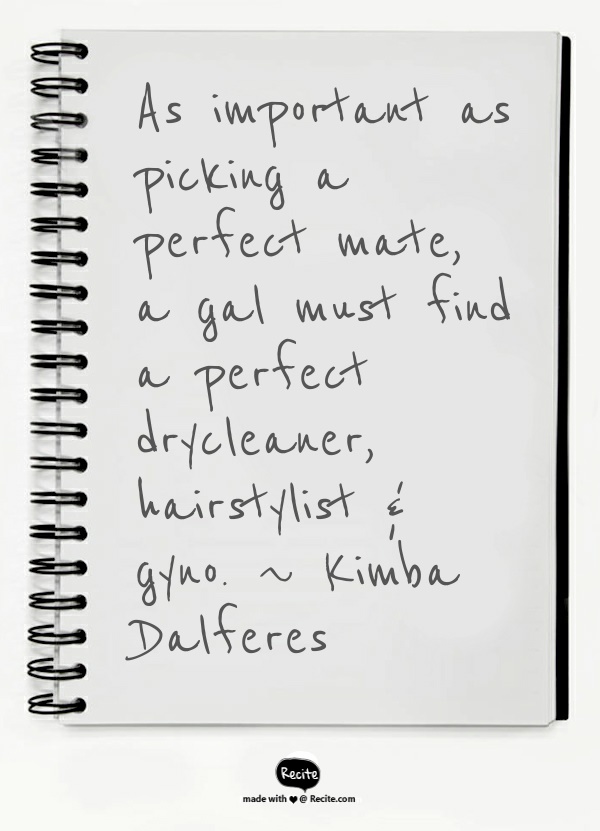 As important as
picking a
perfect mate,
a gal must find
a perfect
drycleaner,
hairstylist &
gyno. ~ Kimba
Dalferes
Recite
made with ♥ @ Recite.com